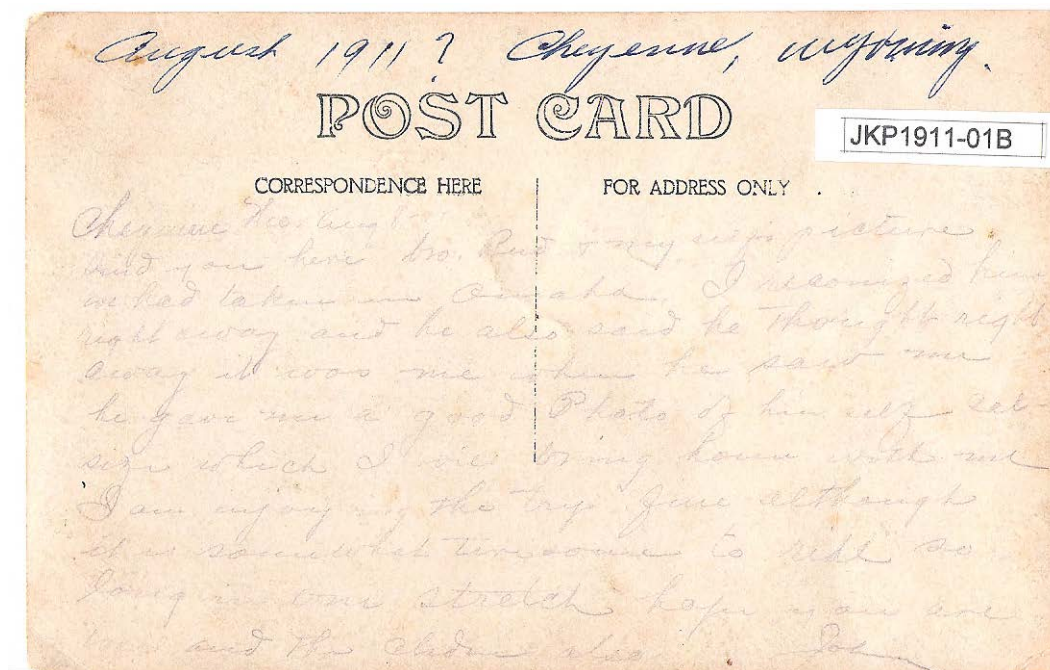 August 1911? Cheyenne, Wyoming.
POST CARD
JKP1911-01B
CORRESPONDENCE HERE
FOR ADDRESS ONLY
picture
you here bro. & my
we had taken in Omaha. I recognized him
right away and he also said he thought right
away it was me when he saw me
he gave me a good Photo of himself
size which I wil bring home with me
I am enjoying the trip fine although
it is somewhat tiresome to ride so
long in one stretch hope you are
and the also John